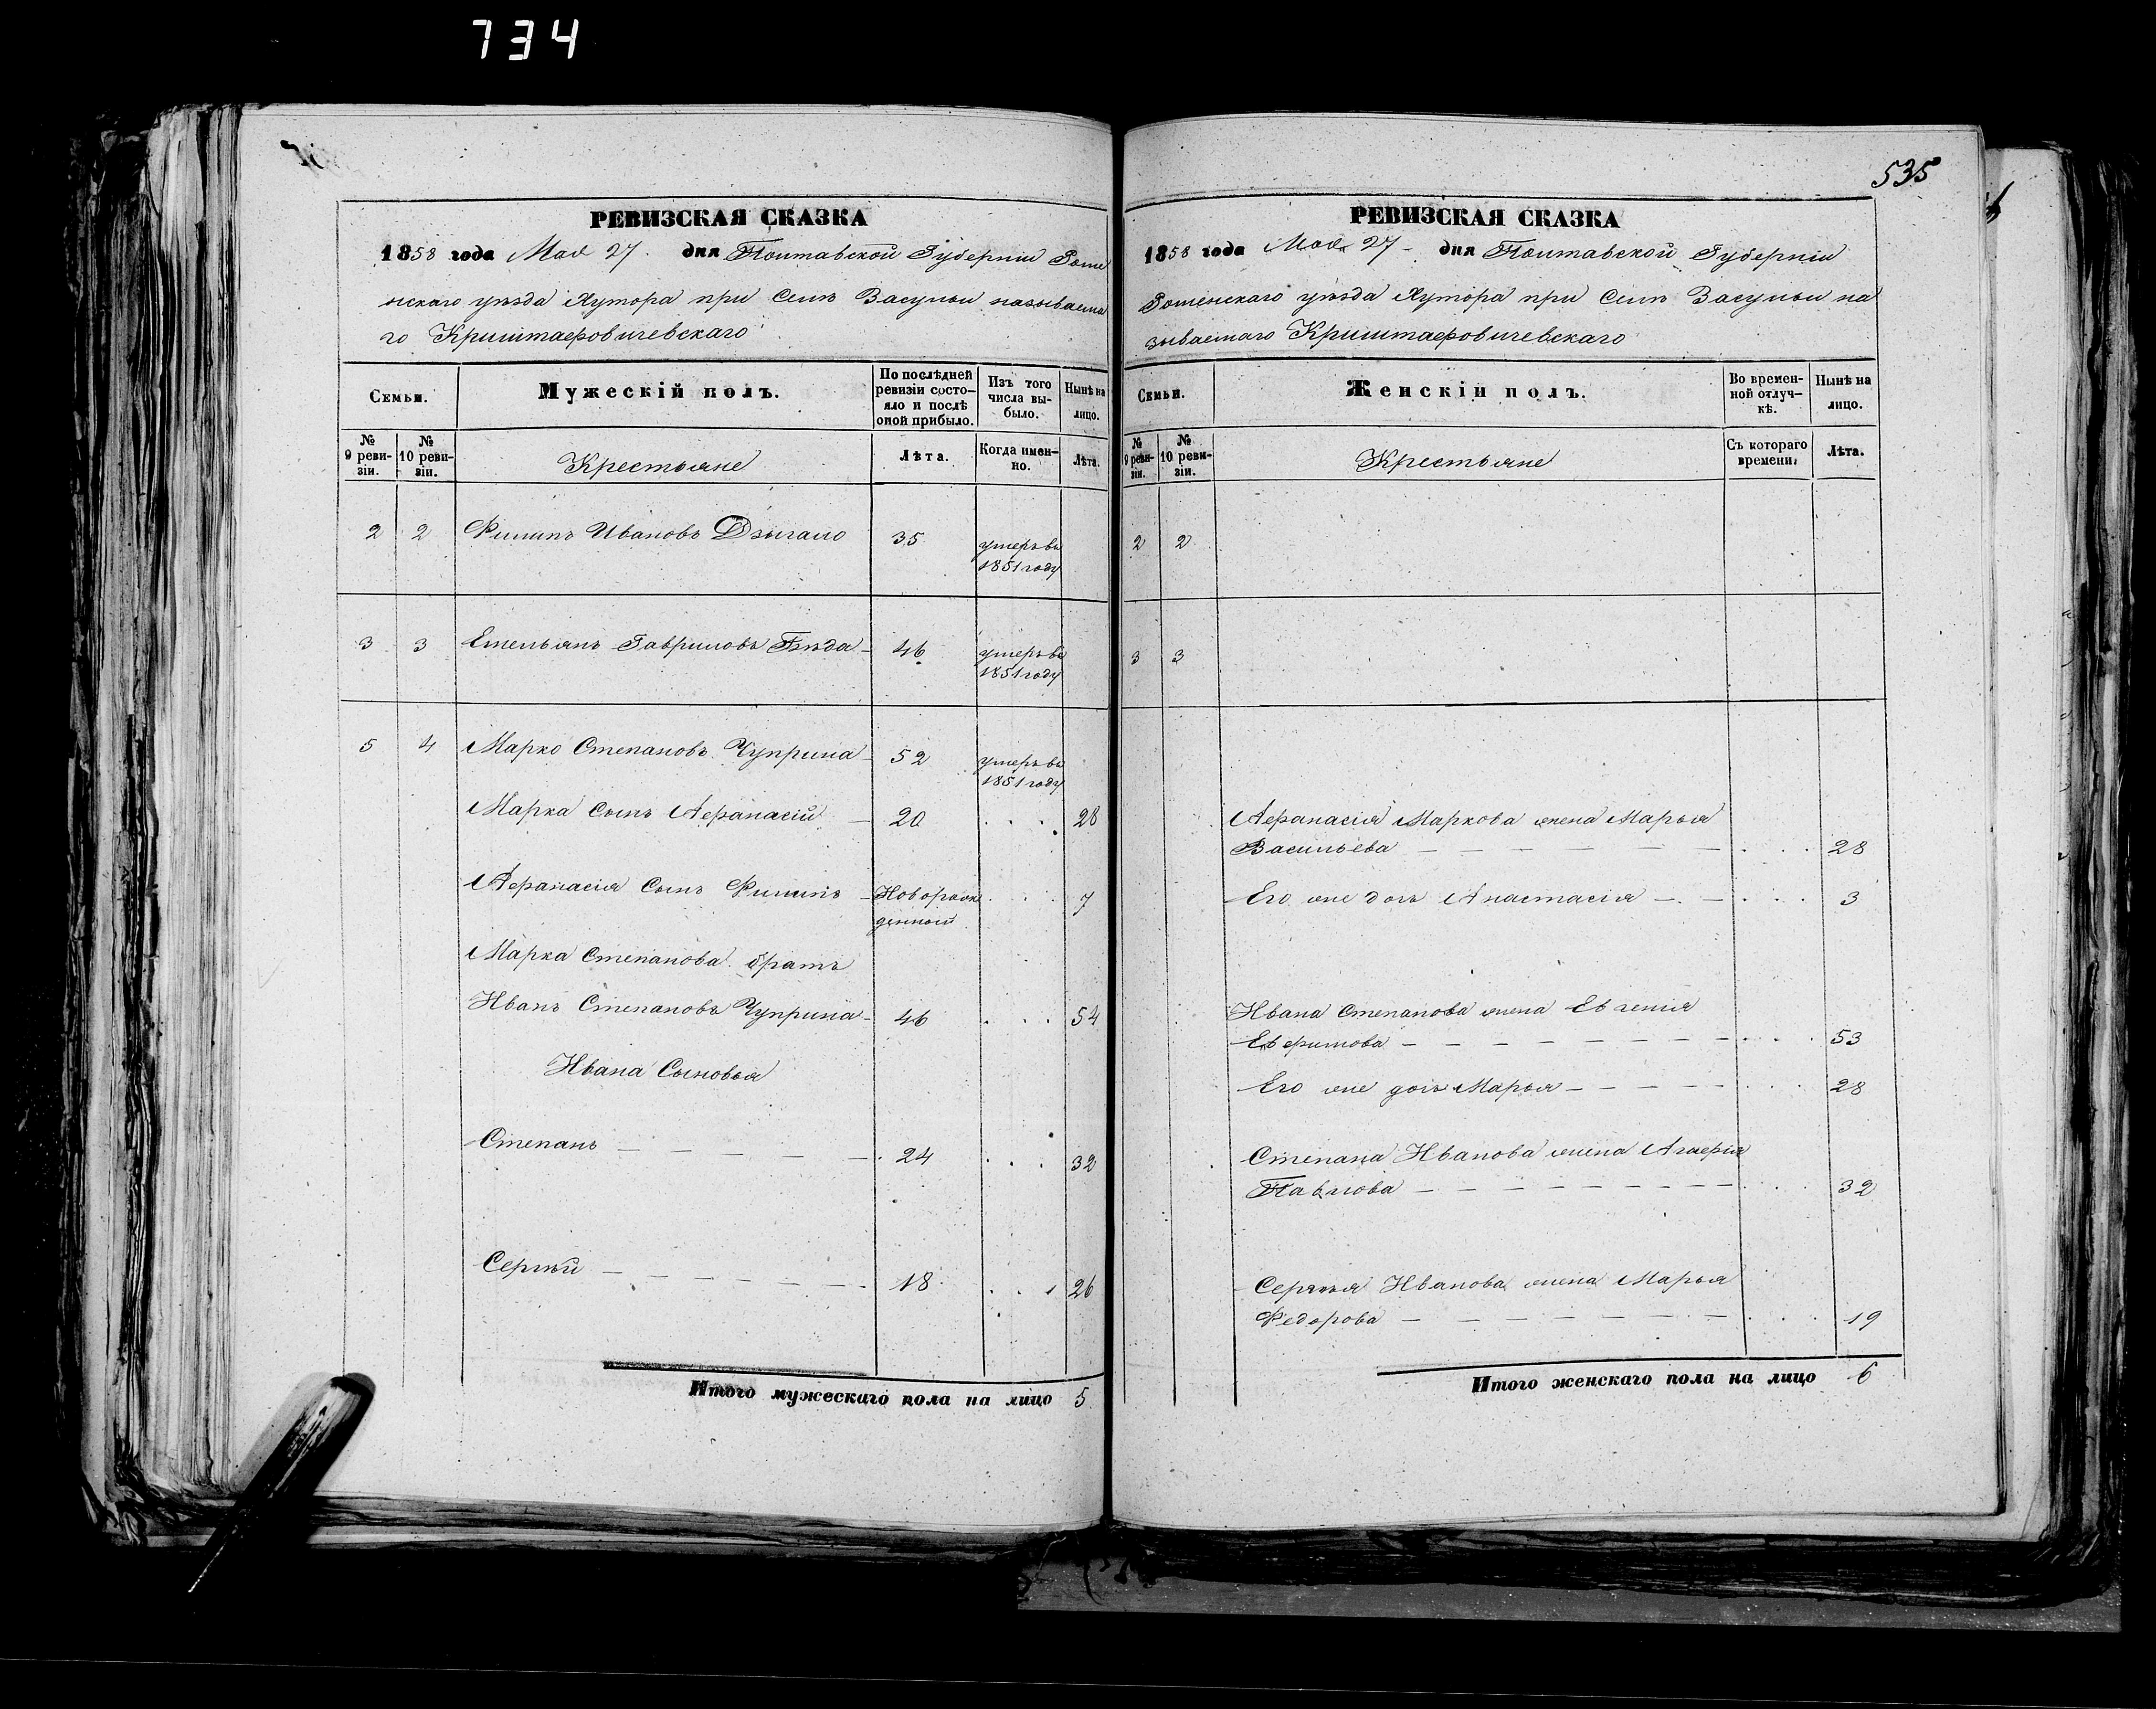 734
РЕВИЗСКАЯ СКАЗКА
1858 года Мая 27. дня Полтавской Губерніи Роме
нскаго уѣзда Хутора при Селѣ Засульи называема
го Криштафовичевскаго
Семьи.
Мужескій полъ.
По послѣдней
ревизіи состо-
яло и послѣ
оной прибыло.
Изъ того
числа вы-
было.
Нынѣ на
лицо.
№
9 реви-
зіи.
№
10 реви-
зіи.
Крестьяне
Лѣта.
Когда имен-
но.
Лѣта.
2 2 Филипъ Ивановъ Дзыгало 35 умеръ въ
1851 году
3 3 Емельянъ Гавриловъ Бѣда 46 умеръ въ
1851 году
5 4 Марко Степановъ Чуприна 52 умеръ въ
1851 году
Марка Сынъ Афанасій 20 28
Афанасія Сынъ Филипъ Новорож
денный 7
Марка Степанова братъ
Иванъ Степановъ Чуприна 46 54
Ивана Сыновья
Степанъ 24 32
Сергѣй 18 26
Итого мужескаго пола на лицо 5
535
РЕВИЗСКАЯ СКАЗКА
1858 года Мая 27 дня Полтавской Губерніи
Роменскаго уѣзда Хутора при Селѣ Засульи на
зываемаго Криштафовичевскаго
Семьи.
Женскій полъ.
Во времен-
ной отлуч-
кѣ.
Нынѣ на
лицо.
№
9 реви-
зіи.
№
10 реви-
зіи.
Крестьяне
Съ котораго
времени.
Лѣта.
2 2
3 3
Афанасія Маркова жена Марья
Васильева 28
Его же дочь Анастасія 3
Ивана Степанова жена Евгенія
Ефимова 53
Его же дочь Марья 28
Степана Иванова жена Агафія
Павлова 32
Сергѣя Иванова жена Марья
Федорова 19
Итого женскаго пола на лицо 6